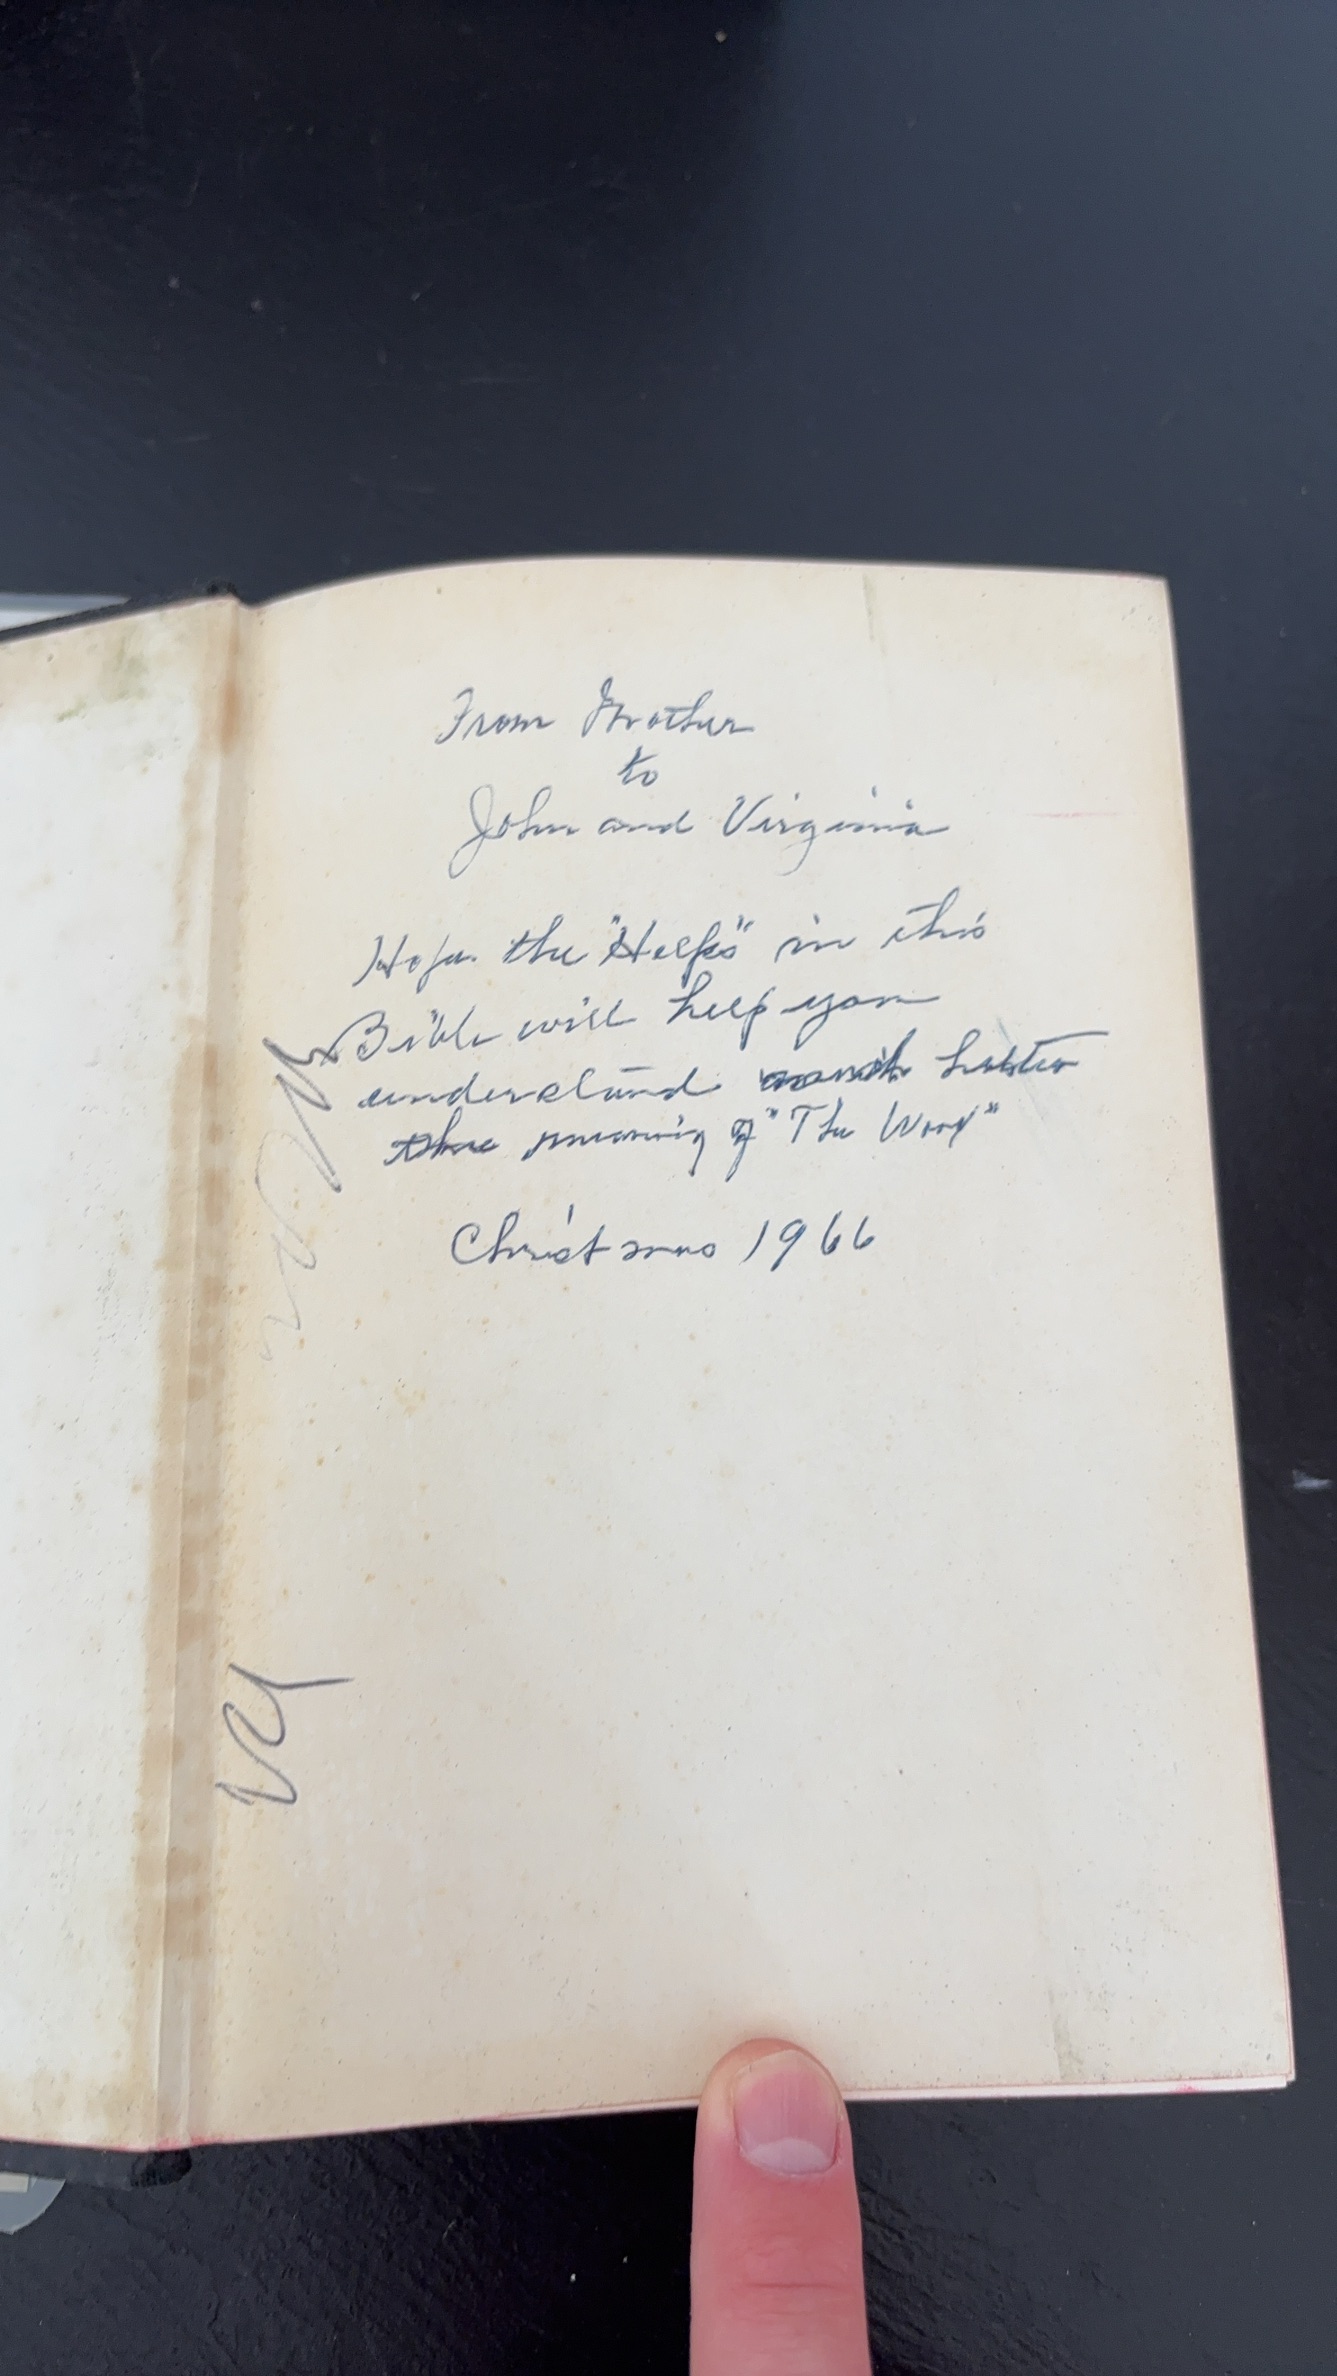 From Mother
to
John and Virginia
Hope the "Helps" in this
Bible will help you
understand much better
the meaning of "The Word"
Christmas 1966